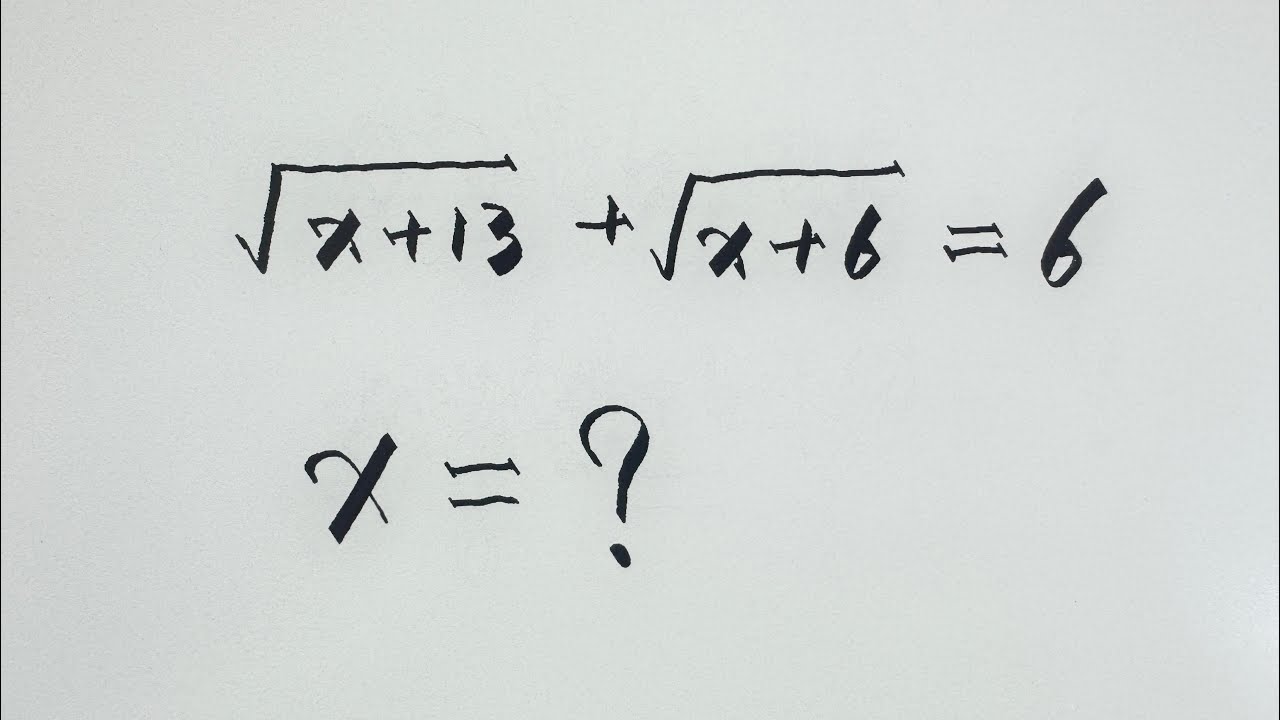 √(x+13) + √(x+6) = 6
x = ?